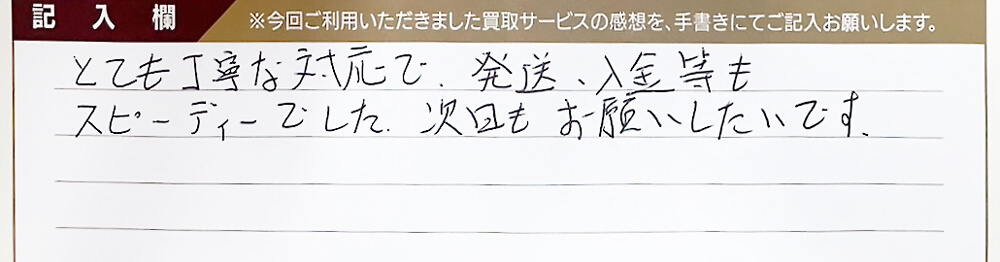 記入欄 ※今回ご利用いただきました買取サービスの感想を、手書きにてご記入お願いします。
とても丁寧な対応で、発送、入金等も
スピーディーでした。次回もお願いしたいです。